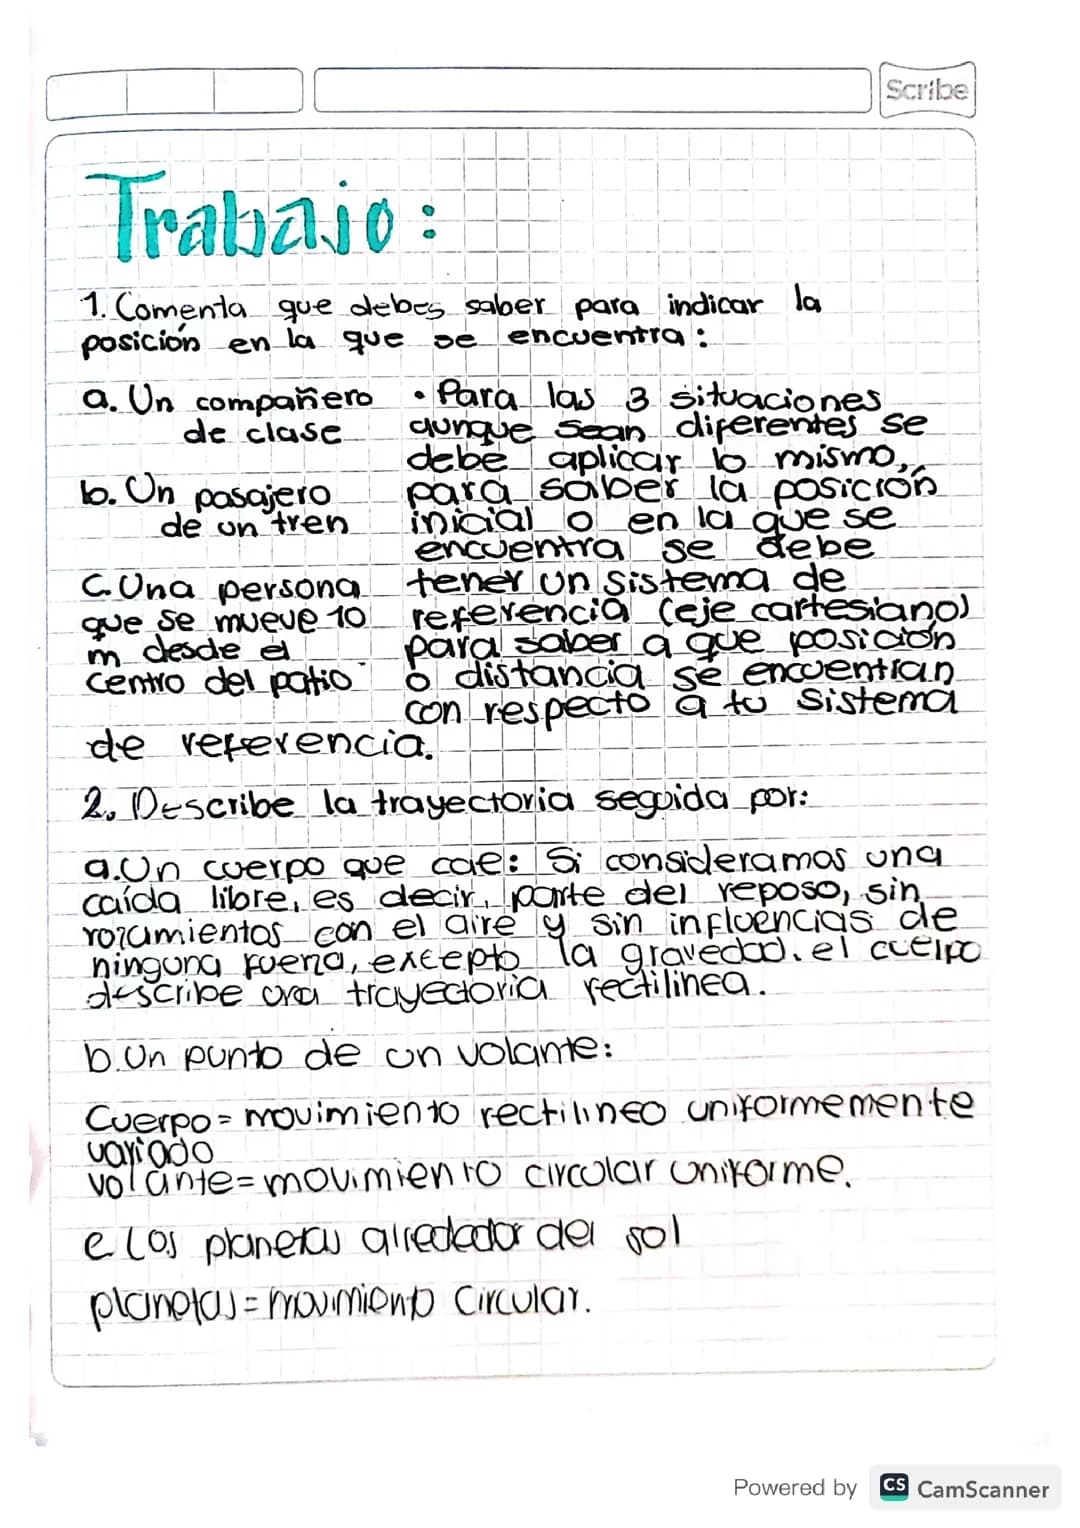 Scribe
Trabajo:
1. Comenta que debes saber para indicar la
posición en la que se encuentra:
a. Un compañero
de clase
b. Un pasajero
de un tren
c. Una persona
que se mueve 10
m desde el
centro del patio
• Para las 3 situaciones
aunque sean diferentes se
debe aplicar lo mismo,
para saber la posición
inicial o en la que se
encuentra se debe
tener un sistema de
referencia (eje cartesiano)
para saber a que posición
o distancia se encuentran
con respecto a tu sistema
de referencia.
2. Describe la trayectoria seguida por:
a. Un cuerpo que cae: Si consideramos una
caída libre, es decir, parte del reposo, sin
rozamientos con el aire y sin influencias de
ninguna fuerza, excepto la gravedad. el cuerpo
describe una trayectoria rectilinea.
b. Un punto de un volante:
Cuerpo = movimiento rectilineo uniformemente
variado
volante = movimiento circular uniforme.
e Los planetas alrededor del sol
planetas = movimiento circular.
Powered by CS CamScanner